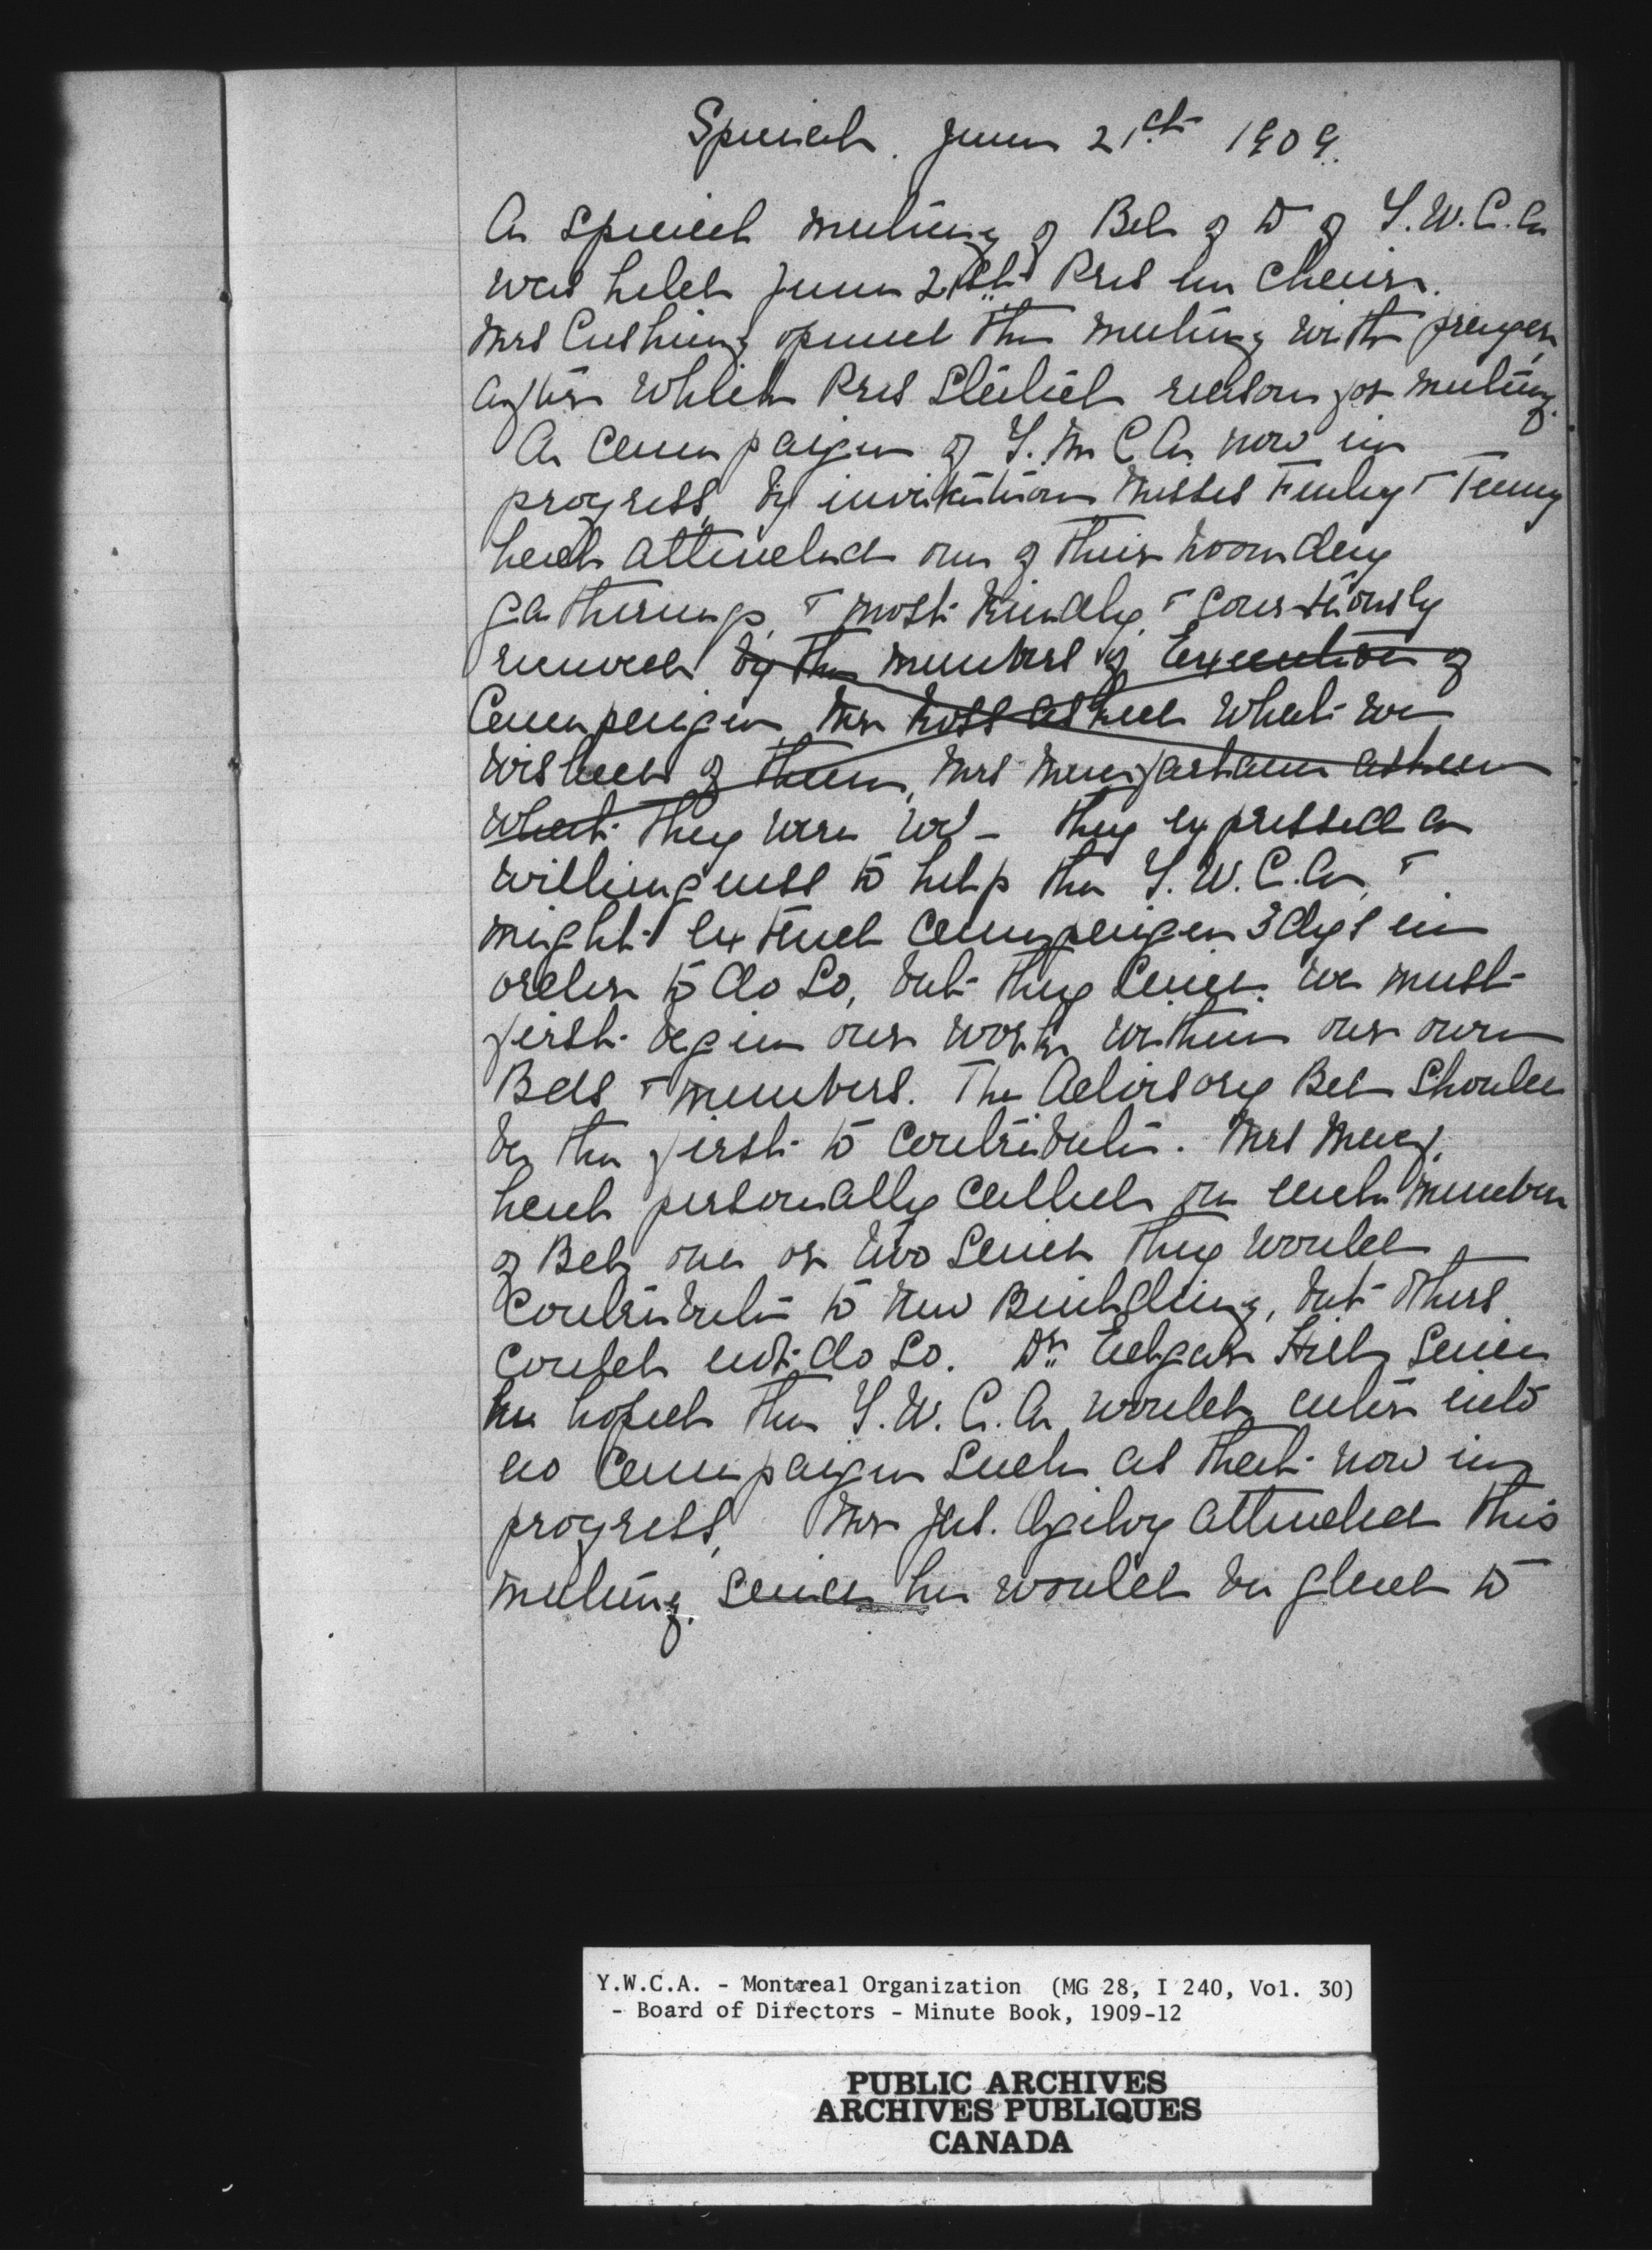 Special. June 21st 1909.
A special meeting of Bd of D of Y.W.C.A
was held June 21st Pres in chair.
Mrs Cushing opened the meeting with prayer,
after which Pres stated reason for meeting.
A campaign of Y.M.C.A. now in
progress, by invitation Misses Finley & Tenny
had attended one of their noonday
gatherings, & most kindly & courteously
received by the members of Executive of
Campaign Mr Ross asked what we
wished of them, Mrs asked
what they were wd - they expressed a
willingness to help the Y.W.C.A. &
might extend campaign 3 dys in
order to do so, but they said we must
first begin our work within our own
Bds & members. The Advisory Bd should
be the first to contribute. Mrs Macf.
had personally called on each member
of Bd, one or two said they would
contribute to new Building, but others
could not do so. Dr Edgar Hill said
he hoped the Y.W.C.A would enter into
no Campaign such as that now in
progress, Mr Jas. Ogilvy attended this
meeting, said he would be glad to
Y.W.C.A. - Montreal Organization (MG 28, I 240, Vol. 30)
- Board of Directors - Minute Book, 1909-12
PUBLIC ARCHIVES
ARCHIVES PUBLIQUES
CANADA